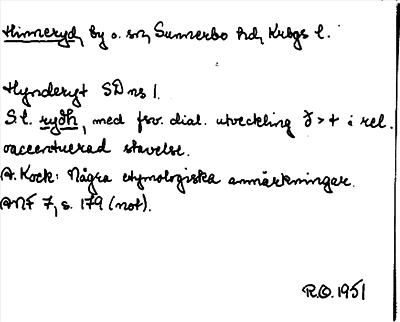 Hinneryd, by o. sn, Sunnerbo hd, Krbgs l.
Hynderyt SD ns 1.
S l. rydh, med fsv. dial. utveckling ð > t i rel.
oaccentuerad stavelse.
A. Kock: Några etymologiska anmärkningar.
ANF 7, s. 179 (not).
R.O. 1951